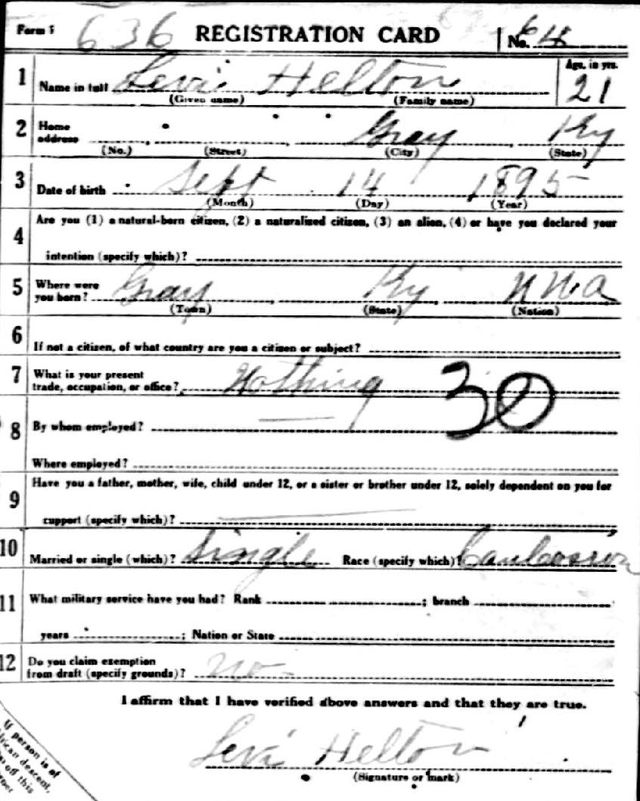 Form 1 636 REGISTRATION CARD No. 64
1 Name in full Levi Helton Age, in yrs. 21
(Given name) (Family name)
2 Home address Gray Ky
(No.) (Street) (City) (State)
3 Date of birth Sept 14 1895
(Month) (Day) (Year)
4 Are you (1) a natural-born citizen, (2) a naturalized citizen, (3) an alien, (4) or have you declared your
intention (specify which)?
5 Where were you born? Gray Ky
(Town) (State) (Nation)
6 If not a citizen, of what country are you a citizen or subject?
7 What is your present trade, occupation, or office? Nothing 30
8 By whom employed?
Where employed?
9 Have you a father, mother, wife, child under 12, or a sister or brother under 12, solely dependent on you for
support (specify which)?
10 Married or single (which)? Single Race (specify which)?
11 What military service have you had? Rank ; branch
years ; Nation or State
12 Do you claim exemption from draft (specify grounds)? no
I affirm that I have verified above answers and that they are true.
Levi Helton
(Signature or mark)
If person is of
African descent,
off this
corner